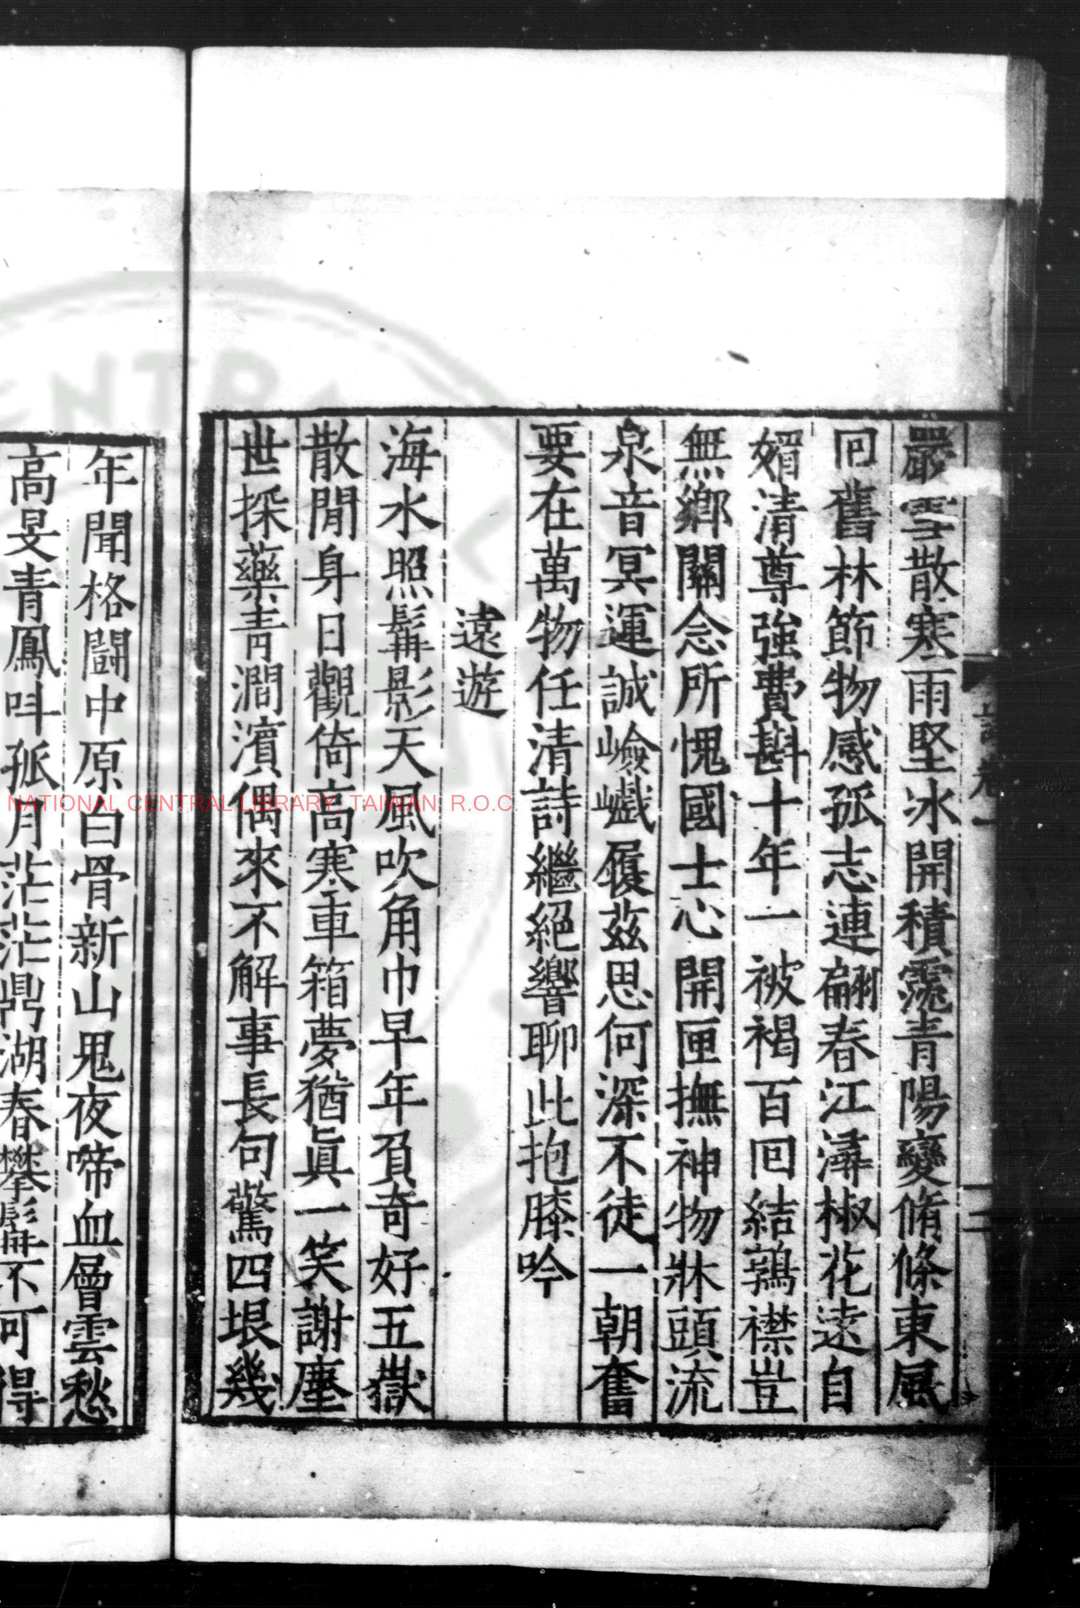 嚴雪散寒雨堅冰開積霓青陽變脩條東風
回舊林節物感孤志連翩春江潯椒花遠自
媚清尊強費斟十年一被褐百回結鶉襟豈
無鄉關念所愧國士心開匣撫神物牀頭流
泉音冥運誠嶮巇履茲思何深不徒一朝奮
要在萬物任清詩繼絕響聊此抱膝吟
遠遊
海水照髯影天風吹角巾早年負奇好五嶽
散閒身日觀倚高寒車箱夢猶眞一笑謝塵
世採藥青澗濱偶來不解事長句驚四垠幾
年聞格鬪中原白骨新山鬼夜啼血層雲愁
高旻青鳳呌孤月茫茫鼎湖春攀髯不可得
詩卷一
三
NATIONAL CENTRAL LIBRARY, TAIWAN, R.O.C.